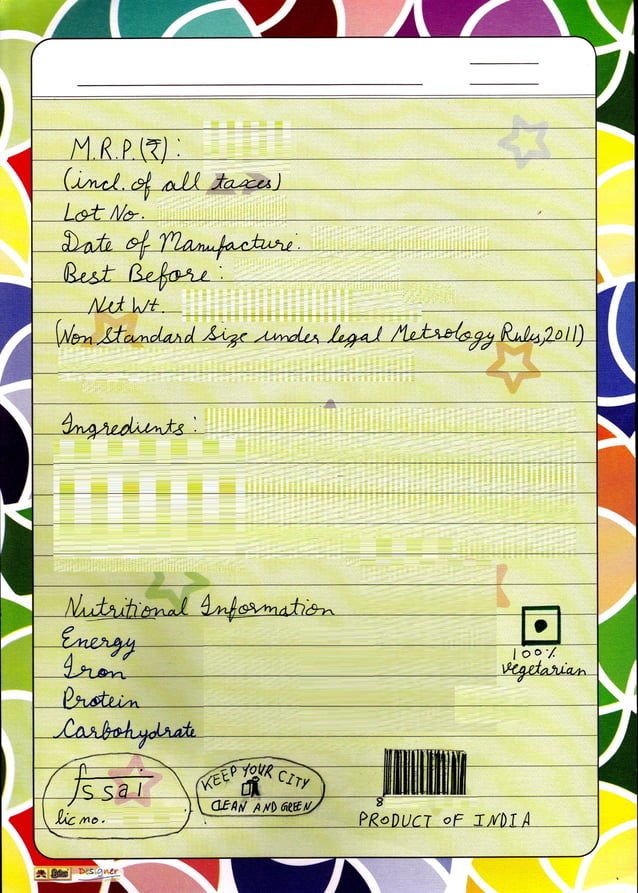 M.R.P.(₹) :
(incl. of all taxes)
Lot No.
Date of Manufacture.
Best Before :
Net Wt.
(Non Standard Size under legal Metrology Rules,2011)
Ingredients :
Nutritional Information
Energy
Iron
Protein
Carbohydrate
100%
vegetarian
fssai
lic no.
KEEP YOUR CITY
CLEAN AND GREEN
8
PRODUCT OF INDIA
Designer